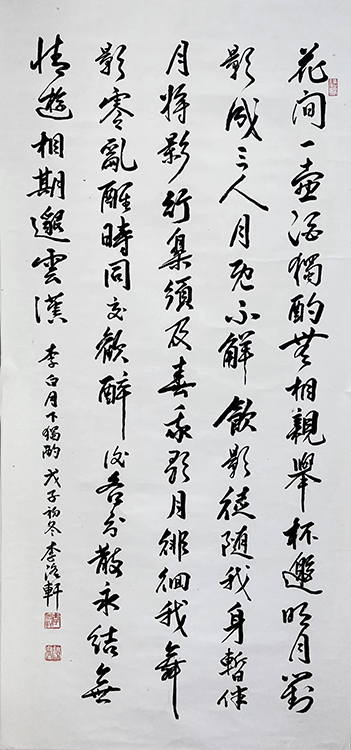 花间一壶酒獨酌無相親舉杯邀明月對
影成三人月既不解飲影徒随我身暫伴
月将影行樂須及春我歌月徘徊我舞
影零亂醒時同交歡醉後各分散永結無
情遊相期邈雲漢
李白月下獨酌 戊子初冬李洛軒